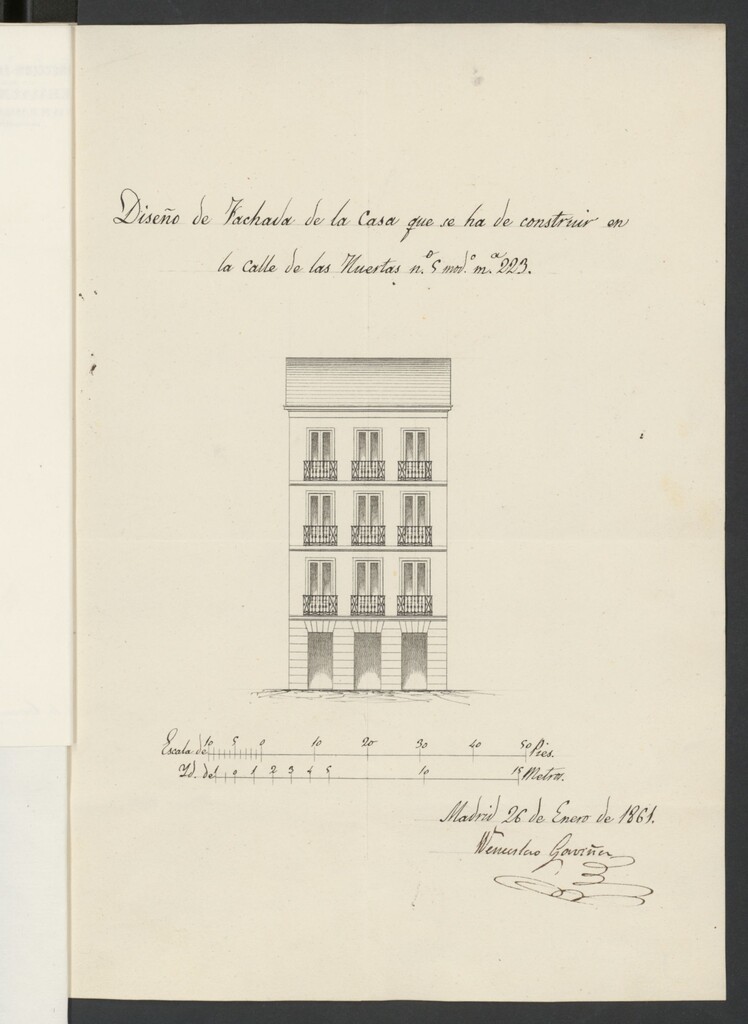 Diseño de Fachada de la Casa que se ha de construir en
la calle de las Huertas n.º 5 mod.º m.ª 223.
Escala de 10 5 0 10 20 30 40 50 Pies.
Id. de 1 0 1 2 3 4 5 10 15 Metros.
Madrid 26 de Enero de 1861.
Wenceslao Gaviña